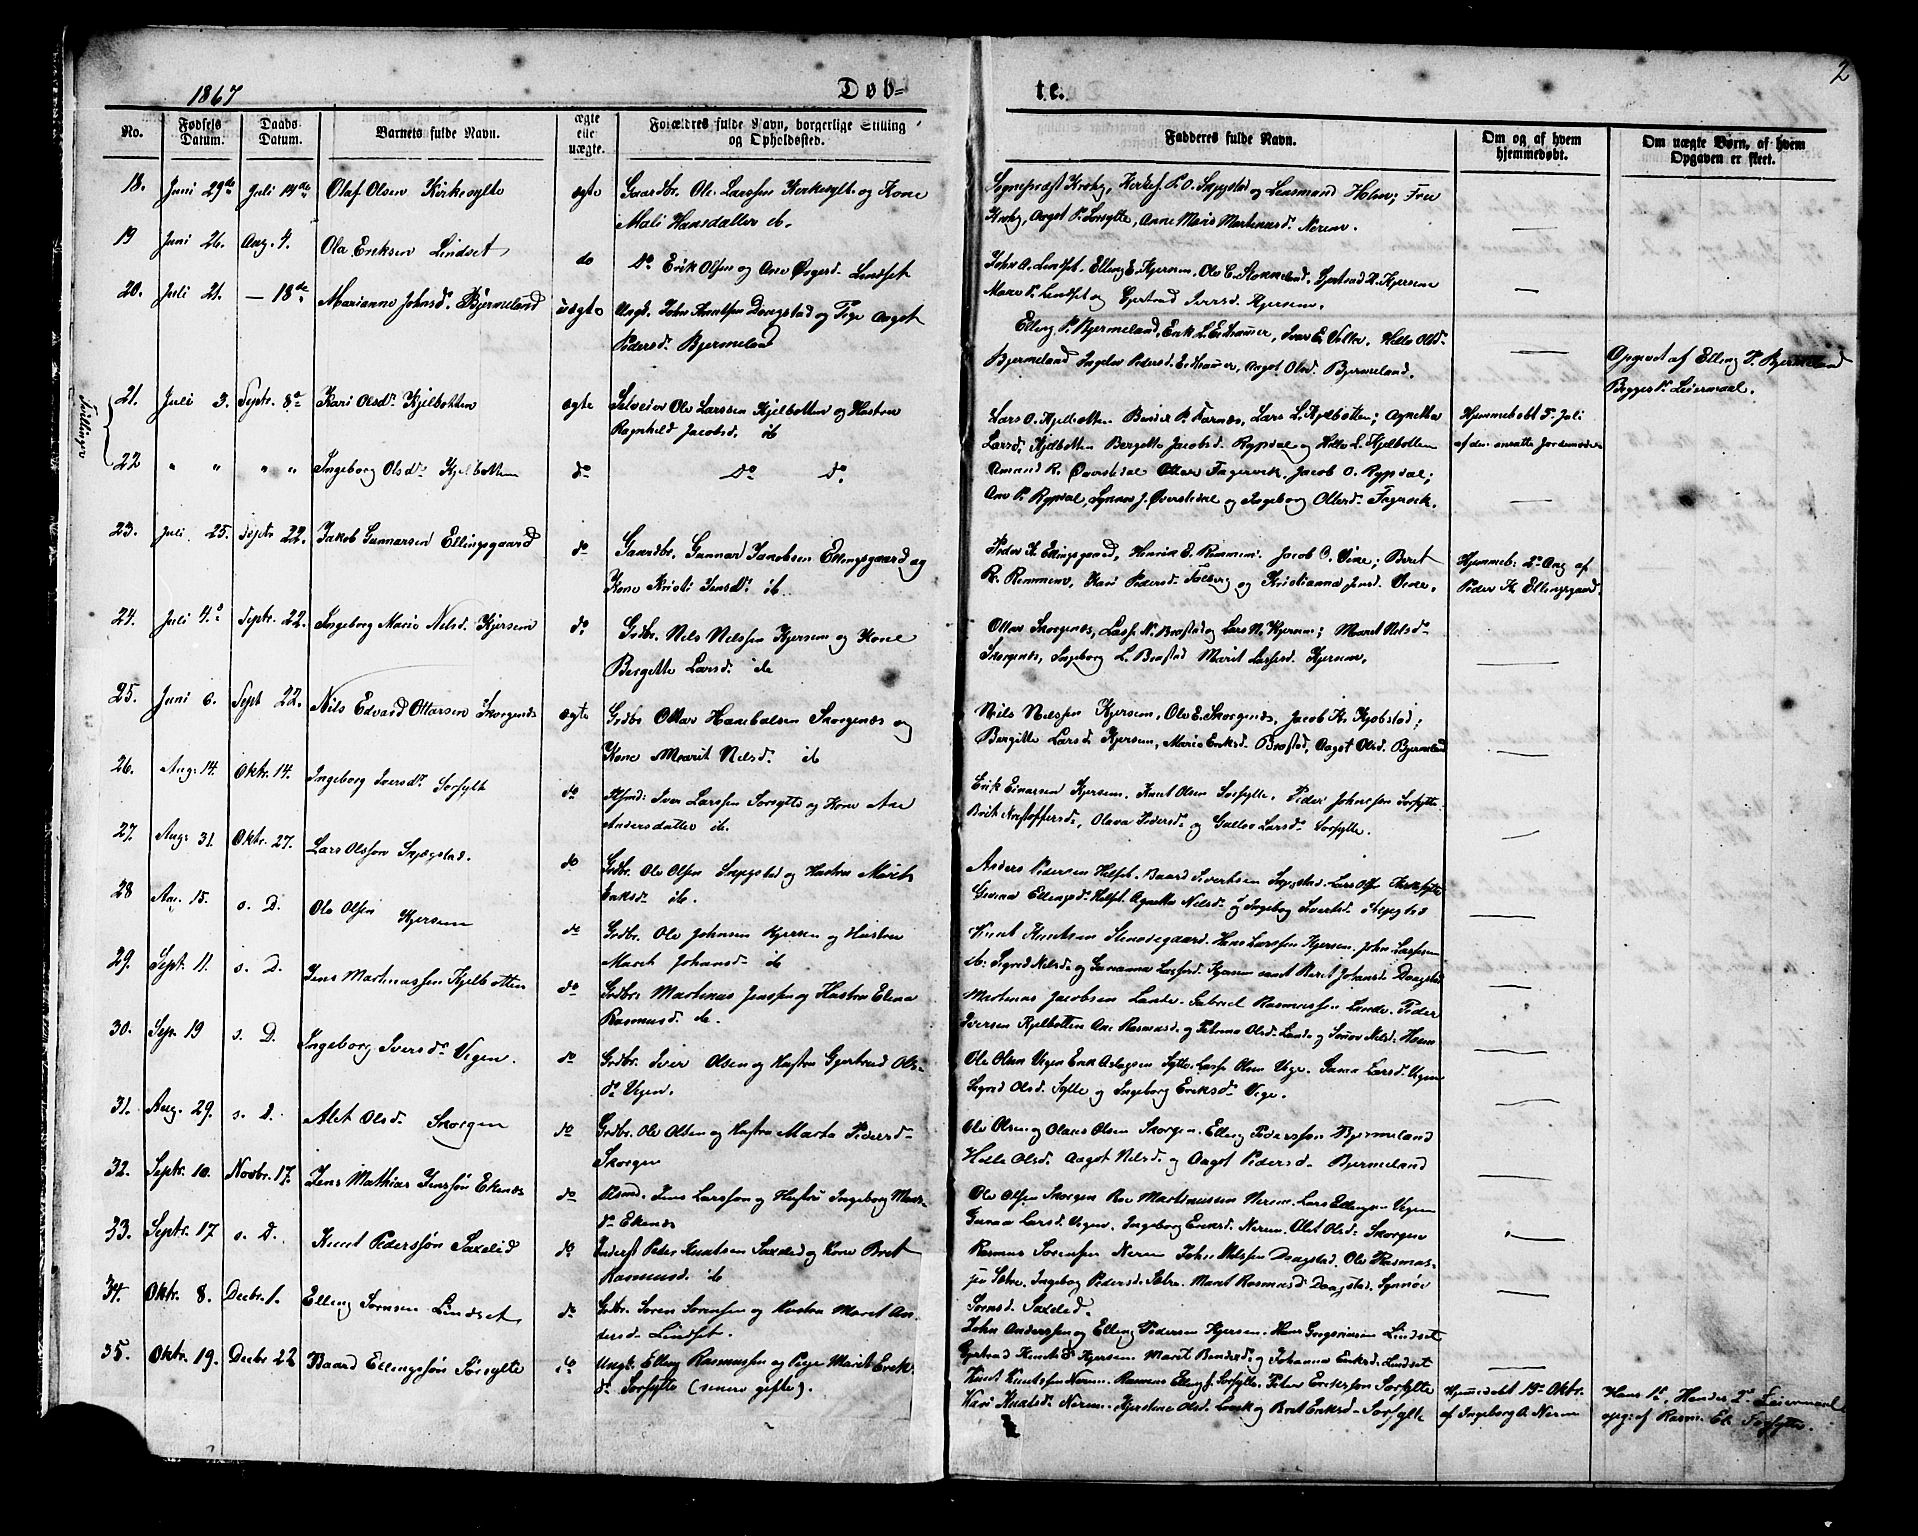 1867
Døb-
te.
2
No.
Fødsels Datum.
Daabs Datum.
Barnets fulde Navn.
ægte elle uægte.
Forældres fulde Navn, borgerlige Stilling og Opholdssted.
Fadderes fulde Navn.
Om og af hvem hjemmedøbt.
Om uægte Børn, af hvem Opgaven er skeet.
18. Juni 29de Juli 14de Olaf Olsen Kirkesylte ægte Gaardbr. Ole Larssen Kirkesylte og Kone
Mali Hansdatter ib.
Sognepræst Krohg, Kirkes. L. O. Skjegstad og Lensmand Holm; Frue
Krohg, Aagot P. Sorsylte, Anne Maris Martinusd. Nerem.
19 Juni 26. Aug. 4. Ola Eriksen Lindset do Do Erik Olsen og Ane Lindset
John A. Lindset, Elling E. Kjersem, Ole E. Gjertrud K. Kjersem
Mare P. Lindset og Gjertrud Iversd. Kjersem.
20. Juli 21. — 18de Marianne Johnsd. Bjermeland uægte Ungk. John Knutsen Dongstad og Pige Aagot
Pedersd. Bjermeland
Elling P. Bjermeland, Erik L. Iver E. Helle Olsd.
Bjermeland Ingelev Pedersd. Aagot Olsd. Bjermeland.
Opgivet af Elling P. Bjermeland
Begges 1ste Leiermaal.
Tvillinger
21. Juli 3. Septr. 8de Kari Olsd. Kjelbotten ægte Selveier Ole Larssen Kjelbotten og Hustru
Ragnhild Jacobsd. ib
Lars O. Kjelbotten Farnæs, Lars L. Kjelbotten; Agnetha
Larsd. Kjelbotten Bergitte Jacobsd. Rypdal og Helle L. Kjelbotten
Hjemmedøbt 5. Juli
af den ansatte Jordemoder
22 " " " " Ingeborg Olsdr. Kjelbotten do Do Do
Amund R. Øverdal Ottar Fagervik, Jacob O. Rypdal;
Ane P. Rypdal, Synnev J. og Ingeborg Ottersd. Fagervik.
23. Juli 25. Septr. 22. Jakob Gunnarsen Ellingsgaard do Gaardbr. Gunnar Jacobsen Ellingsgaard og
Kone Kristi Jensdr. ib.
Peder K. Ellingsgaard, Henrik E. Remmem. Jacob O. Vike; Beret
R. Remmem, Kari Pedersd. og Kristianna Jensd. Vike.
Hjemmeb: 2. Aug af
Peder K. Ellingsgaard.
24. Juli 4. Septr. 22. Ingeborg Marie Nelsd. Kjersem do Grdbr. Nels Nelssen Kjersem og Kone
Bergitte Larsd. ib
Ottar Skorgenæs, Lasse N. Brøstad og Lars N. Kjersem; Maret Nelsd.
Skorgenæs, Ingeborg L. Brøstad Marit Lassesd. Kjersem.
25. Juni 6. Sept 22. Nils Edvard Ottarsen Skorgenæs ægte Grdbr Ottar Skorgenæs og
Kone Marit Nelsd. ib
Nils Nelssen Kjersem, Ole E. Skorgenæs, Jacob K. Kjøbstad;
Bergitte Larsd. Kjersem, Marie Eriksd. Brøstad, Aagot Olsd. Bjermeland
26. Aug. 14. Oktr. 14. Ingeborg Iversdr. Sorsylt do Iver Larssen Sorsylte og Kone Ane
Andersdatter ib.
Erik Einarsen Kjersem. Knut Olsen Sorsylte. Peder Johnssøn Sorsylte.
Brit Kristoffersd., Olava Pedersd. og Larsd. Sorsylte.
27. Aug. 31. Oktr. 27. Lars Olssøn Skjegstad. do Grdbr. Ole Olsen Skjegstad og Hustru Marit
Eriksd. ib.
Anders Pedersen Helset. Baard Sivertsen Skjegstad. Lars Kirkesylte
Ellingsd. Helset. Agnetha Nelsd. og Ingeborg Sivertsd. Skjegstad
28 Aug. 15. s. D. Ole Olsen Kjersem do Grdbr. Ole Johnsen Kjersem og Hustru
Maret Johansd. ib
Knut Knutsen Stenødegaard. Hans Larssen Kjersem. John Lassesen
ib. Sigrid Nelsd. og Susanna Lassesd. Kjersem samt Beret Johansd. Daagstad
29. Sept. 11. s. D. Jens Martinussen Kjelbotten do Grdbr. Martinus Jenssen og Hustru Elena
Rasmusd. ib.
Martinus Jacobsen Lande. Gabriel Rasmussen Lande. Peder
Iversen Kjelbotten Ane Rasmusd. og Olsd. Lande og Nelsd.
30. Sep. 19 s. D. Ingeborg Iversdr. Vegen. do Grdbr. Iver Olsen og Hustru Gjertrud Ols-
dr. Vegen.
Ole Olsen Vegen Erik Aslagsen Sylte. Lasse Olsen Vege. Larsd. Vegen
Sigrid Olsd. Sylte og Ingeborg Eriksd. Vege.
31. Aug. 29. s. D. Alet Olsd. Skorgen do Grdbr. Ole Olsen og Hustru Marta Pedersd.
Skorgen
Ole Olsen og Olaus Olsen Skorgen. Elling Pederssøn Bjermeland
Helle Olsd. Aagot Nelsd. og Aagot Pedersd. Bjermeland
32. Septr. 10. Novbr. 17. Jens Mathias Jenssøn Ekenæs do Jens Larssøn og Hustru Ingeborg
dr. Ekenæs
Ole Olsen Skorgen Martinussen Nerem. Lars Ellingsen Vegen
Larsd. Vegen, Ingeborg Eriksd. Nerem. Alet Olsd. Skorgen
33. Septr. 17 s. D. Knut Pederssøn Saxelid do Inderst Peder Knutsen Saxelid og Kone Bret
Rasmusd. ib
Rasmus Sørensen Nerem John Nelssen Daagstad. Ole Rasmus-
sen Sætre. Ingeborg Pedersd. Sætre. Maret Rasmusd Daagstad. Synnøv
Sorensd. Saxelid.
34. Oktr. 8. Decbr. 1. Elling Sørensen Lindset do Grdbr. Soren Sorensen og Hustru Maret An-
dersd. Lindset.
John Anderssen og Elling Pedersen Kjersem. Hans Lindset
Gjertrud Knutsd. Kjersem Maret Bendixd. og Johanna Eriksd. Lindset
35. Oktr. 19. Decbr 22 Baard Ellingssøn Sørsylte do Ungk. Elling Rasmussen og Pige Marit Erik-
dr. Sorsylte (senere gifte).
Knut Knutssen Nerem. Rasmus Elling s. Sorsylte. Peter Erikssøn Sorsylte
Kari Knutsd. Nerem. Kjerstine Olsd. og Bret Eriksd. Sorsylte
Hjemmedøbt 19de Oktr.
af Ingeborg A. Nerem
Hans 1ste, Hendes 2de Leiermaal
opg: af Rasm. El. Sorsylte.